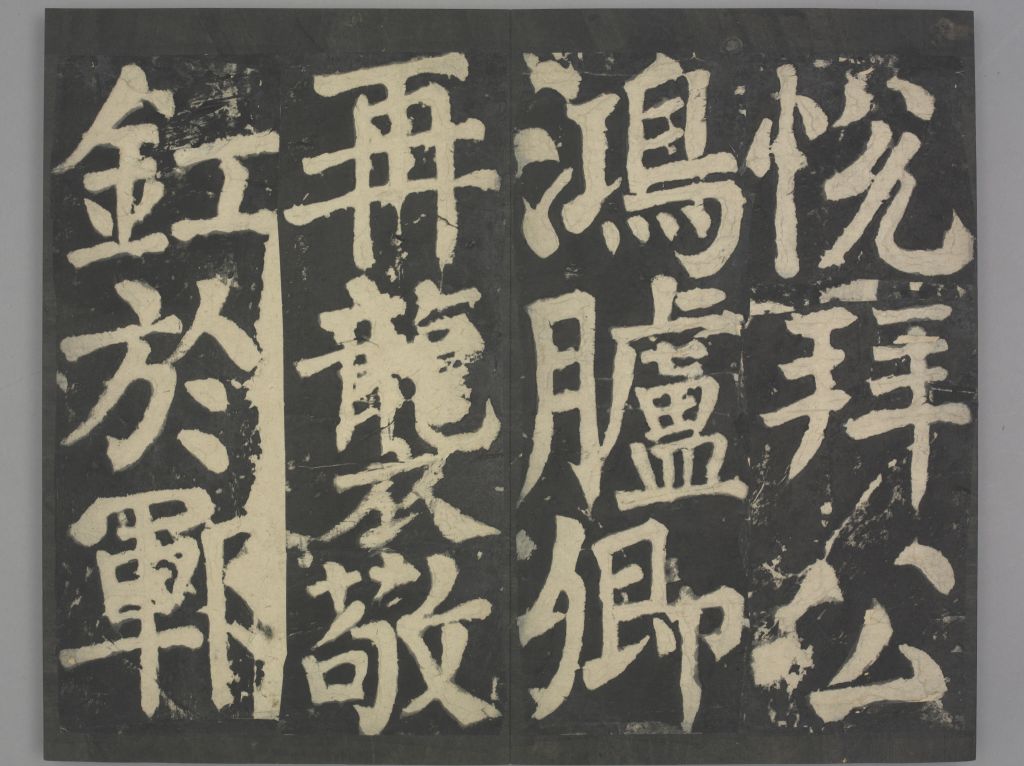 悅拜公
鴻臚卿
再襲敬
釭於鄆